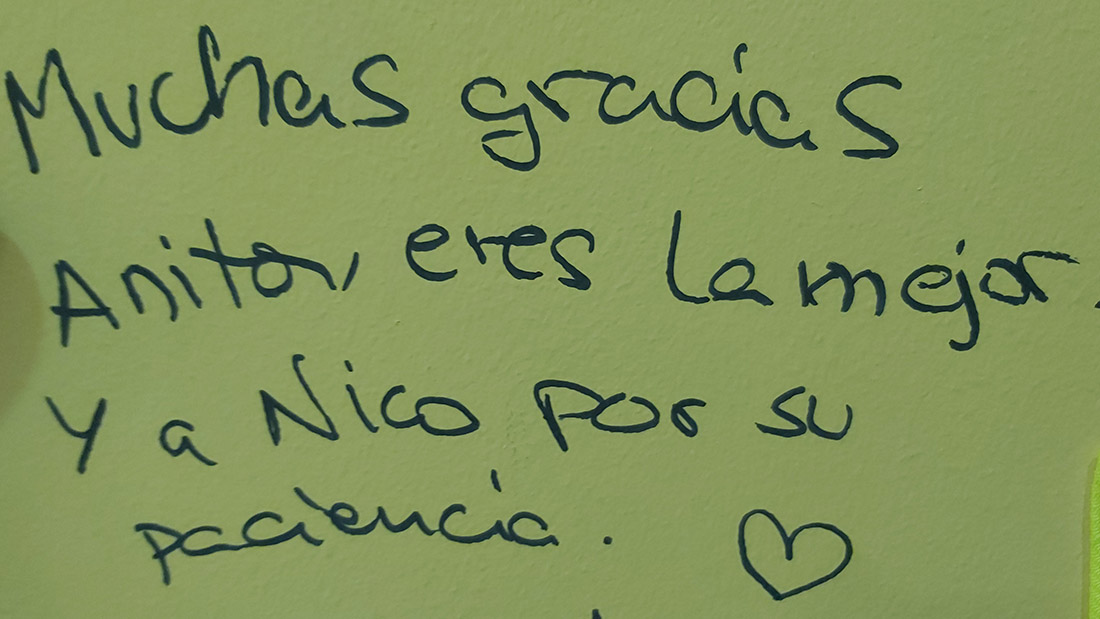 Muchas gracias
Anita, eres la mejor.
Y a Nico por su
paciencia.